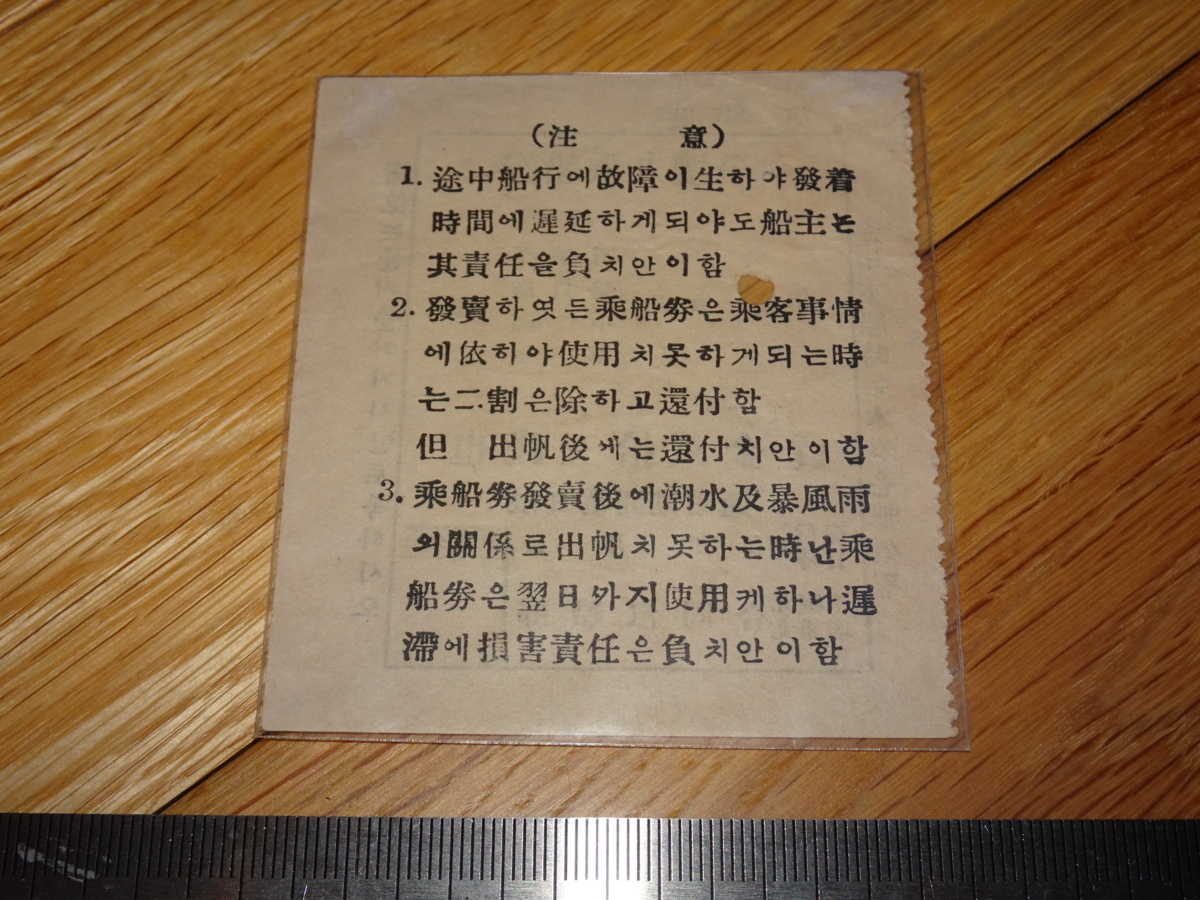 (注 意)
1. 途中船行에故障이生하야發着
時間에遲延하게되야도船主는
其責任을負치안이함
2. 發賣하엿든乘船券은乘客事情
에依히야使用치못하게되는時
는二割은除하고還付함
但 出帆後에는還付치안이함
3. 乘船券發賣後에潮水及暴風雨
의關係로出帆치못하는時난乘
船券은翌日까지使用케하나遲
滯에損害責任은負치안이함